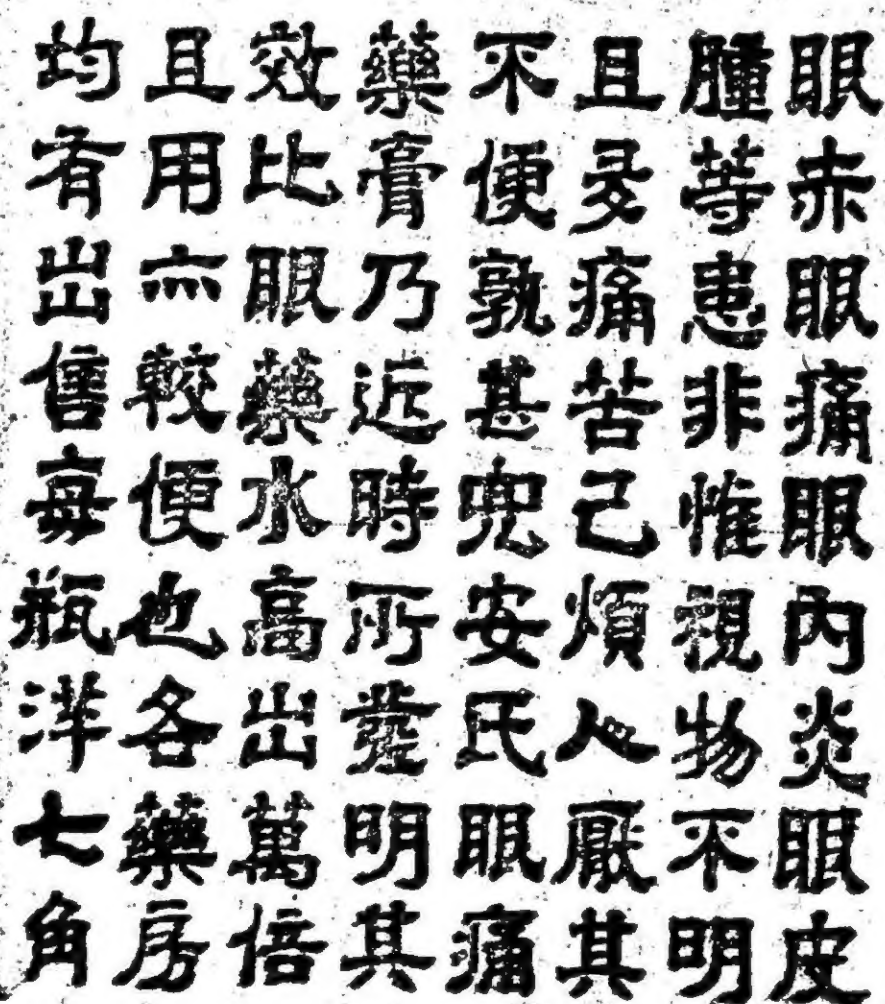 眼赤眼痛眼內炎眼皮
腫等患非惟視物不明
且多痛苦己煩人厭其
不便孰甚兜安氏眼痛
藥膏乃近時所發明其
效比眼藥水高出萬倍
且用亦較便也各藥房
均有出售每瓶洋七角